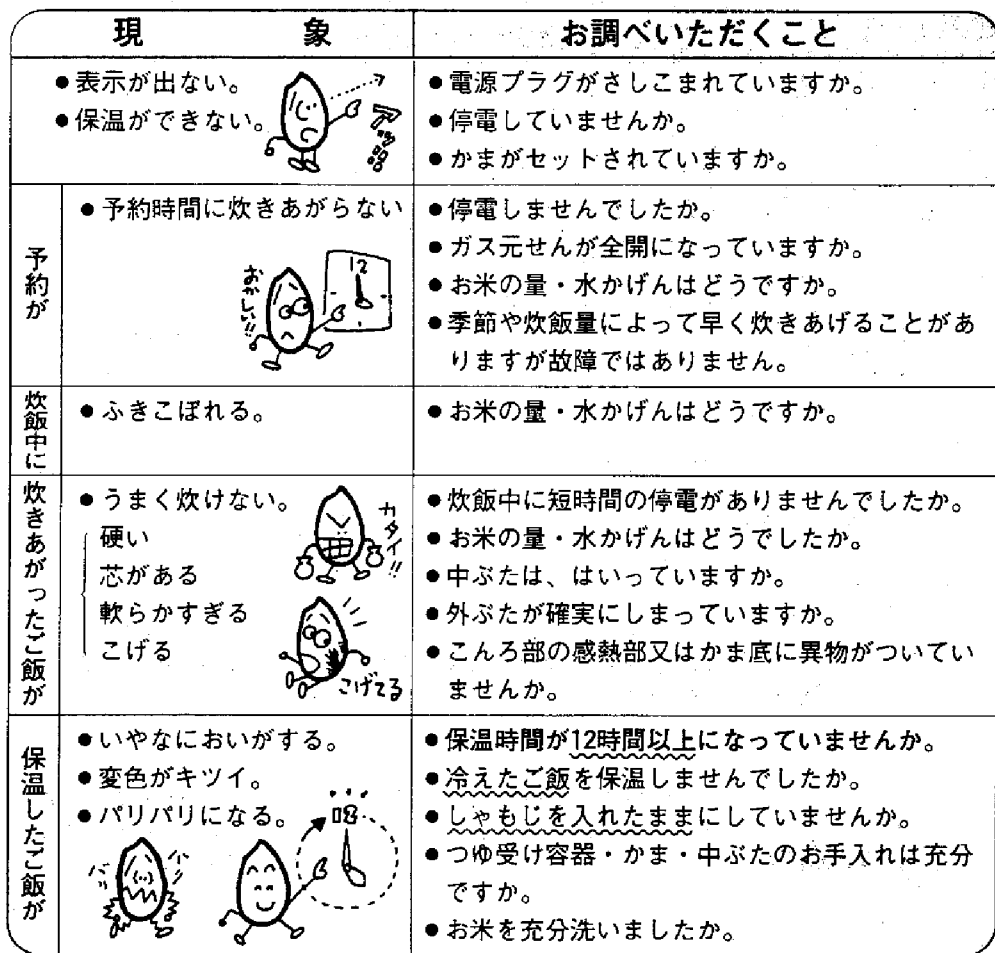 現象 お調べいただくこと
●表示が出ない。
●保温ができない。
●電源プラグがさしこまれていますか。
●停電していませんか。
●かまがセットされていますか。
予約が
●予約時間に炊きあがらない
12
おかしい!!
●停電しませんでしたか。
●ガス元せんが全開になっていますか。
●お米の量・水かげんはどうですか。
●季節や炊飯量によって早く炊きあげることがあ
りますが故障ではありません。
炊飯中に
●ふきこぼれる。
●お米の量・水かげんはどうですか。
炊きあがったご飯が
●うまく炊けない。
硬い
芯がある
軟らかすぎる
こげる
カタイ!!
こげてる
●炊飯中に短時間の停電がありませんでしたか。
●お米の量・水かげんはどうでしたか。
●中ぶたは、はいっていますか。
●外ぶたが確実にしまっていますか。
●こんろ部の感熱部又はかま底に異物がついてい
ませんか。
保温したご飯が
●いやなにおいがする。
●変色がキツイ。
●パリパリになる。
●保温時間が12時間以上になっていませんか。
●冷えたご飯を保温しませんでしたか。
●しゃもじを入れたままにしていませんか。
●つゆ受け容器・かま・中ぶたのお手入れは充分
ですか。
●お米を充分洗いましたか。